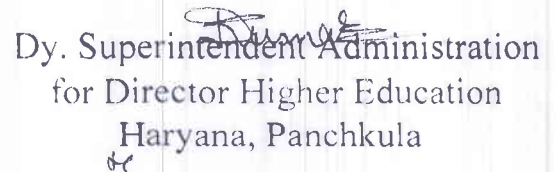 Dy. Superintendent Administration
for Director Higher Education
Haryana, Panchkula